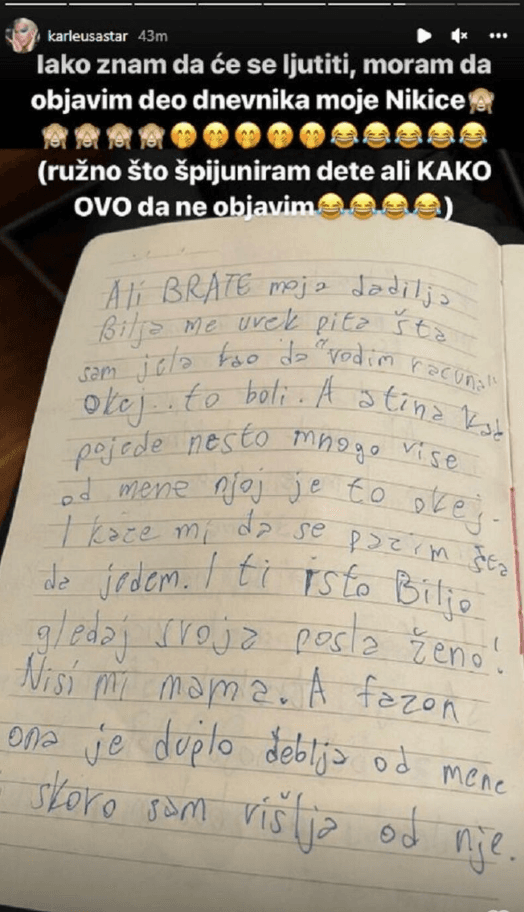 karleusastar 43m
Iako znam da će se ljutiti, moram da
objavim deo dnevnika moje Nikice🙈
🙈🙈🙈🙈🤭🤭🤭🤭🤭😂😂😂😂😂
(ružno što špijuniram dete ali KAKO
OVO da ne objavim😂😂😂😂)
Ali BRATE moja dadilja
Bilja me uvek pita šta
sam jela kao da "vodim računa"
Okej.. to boli. A Atina kad
pojede nesto mnogo vise
od mene njoj je to okej.
I kaže mi da se pazim šta
da jedem. I ti isto Biljo
gledaj svoja posla ženo!
Nisi mi mama. A fazon
ona je duplo deblja od mene
i skoro sam višlja od nje.